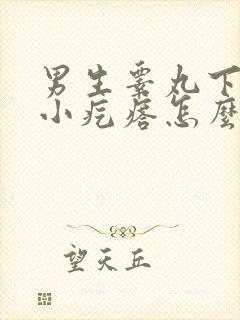 男生睾丸下
小疙瘩怎麼
望天丘